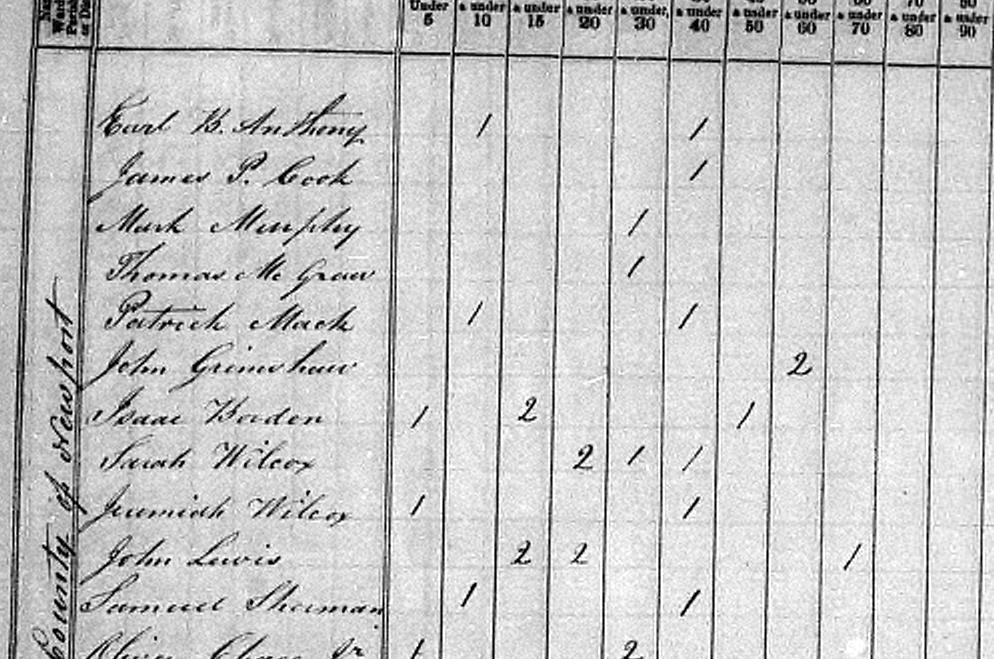 Under & under & under & under & under, & under & under & under & under & under & under
5 10 15 20 30 40 50 60 70 80 90
Earl B. Anthony 1 1
James P. Cook 1
Mark Murphy 1
Thomas Mc Graw 1
Patrick Mack 1 1
John Grimshaw 2
Isaac Borden 1 2 1
Sarah Wilcox 2 1 1
Jeremiah Wilcox 1 1
John Lewis 2 2 1
Samuel Sherman 1 1
Oliver Chace Jr 1 2
County of Newport